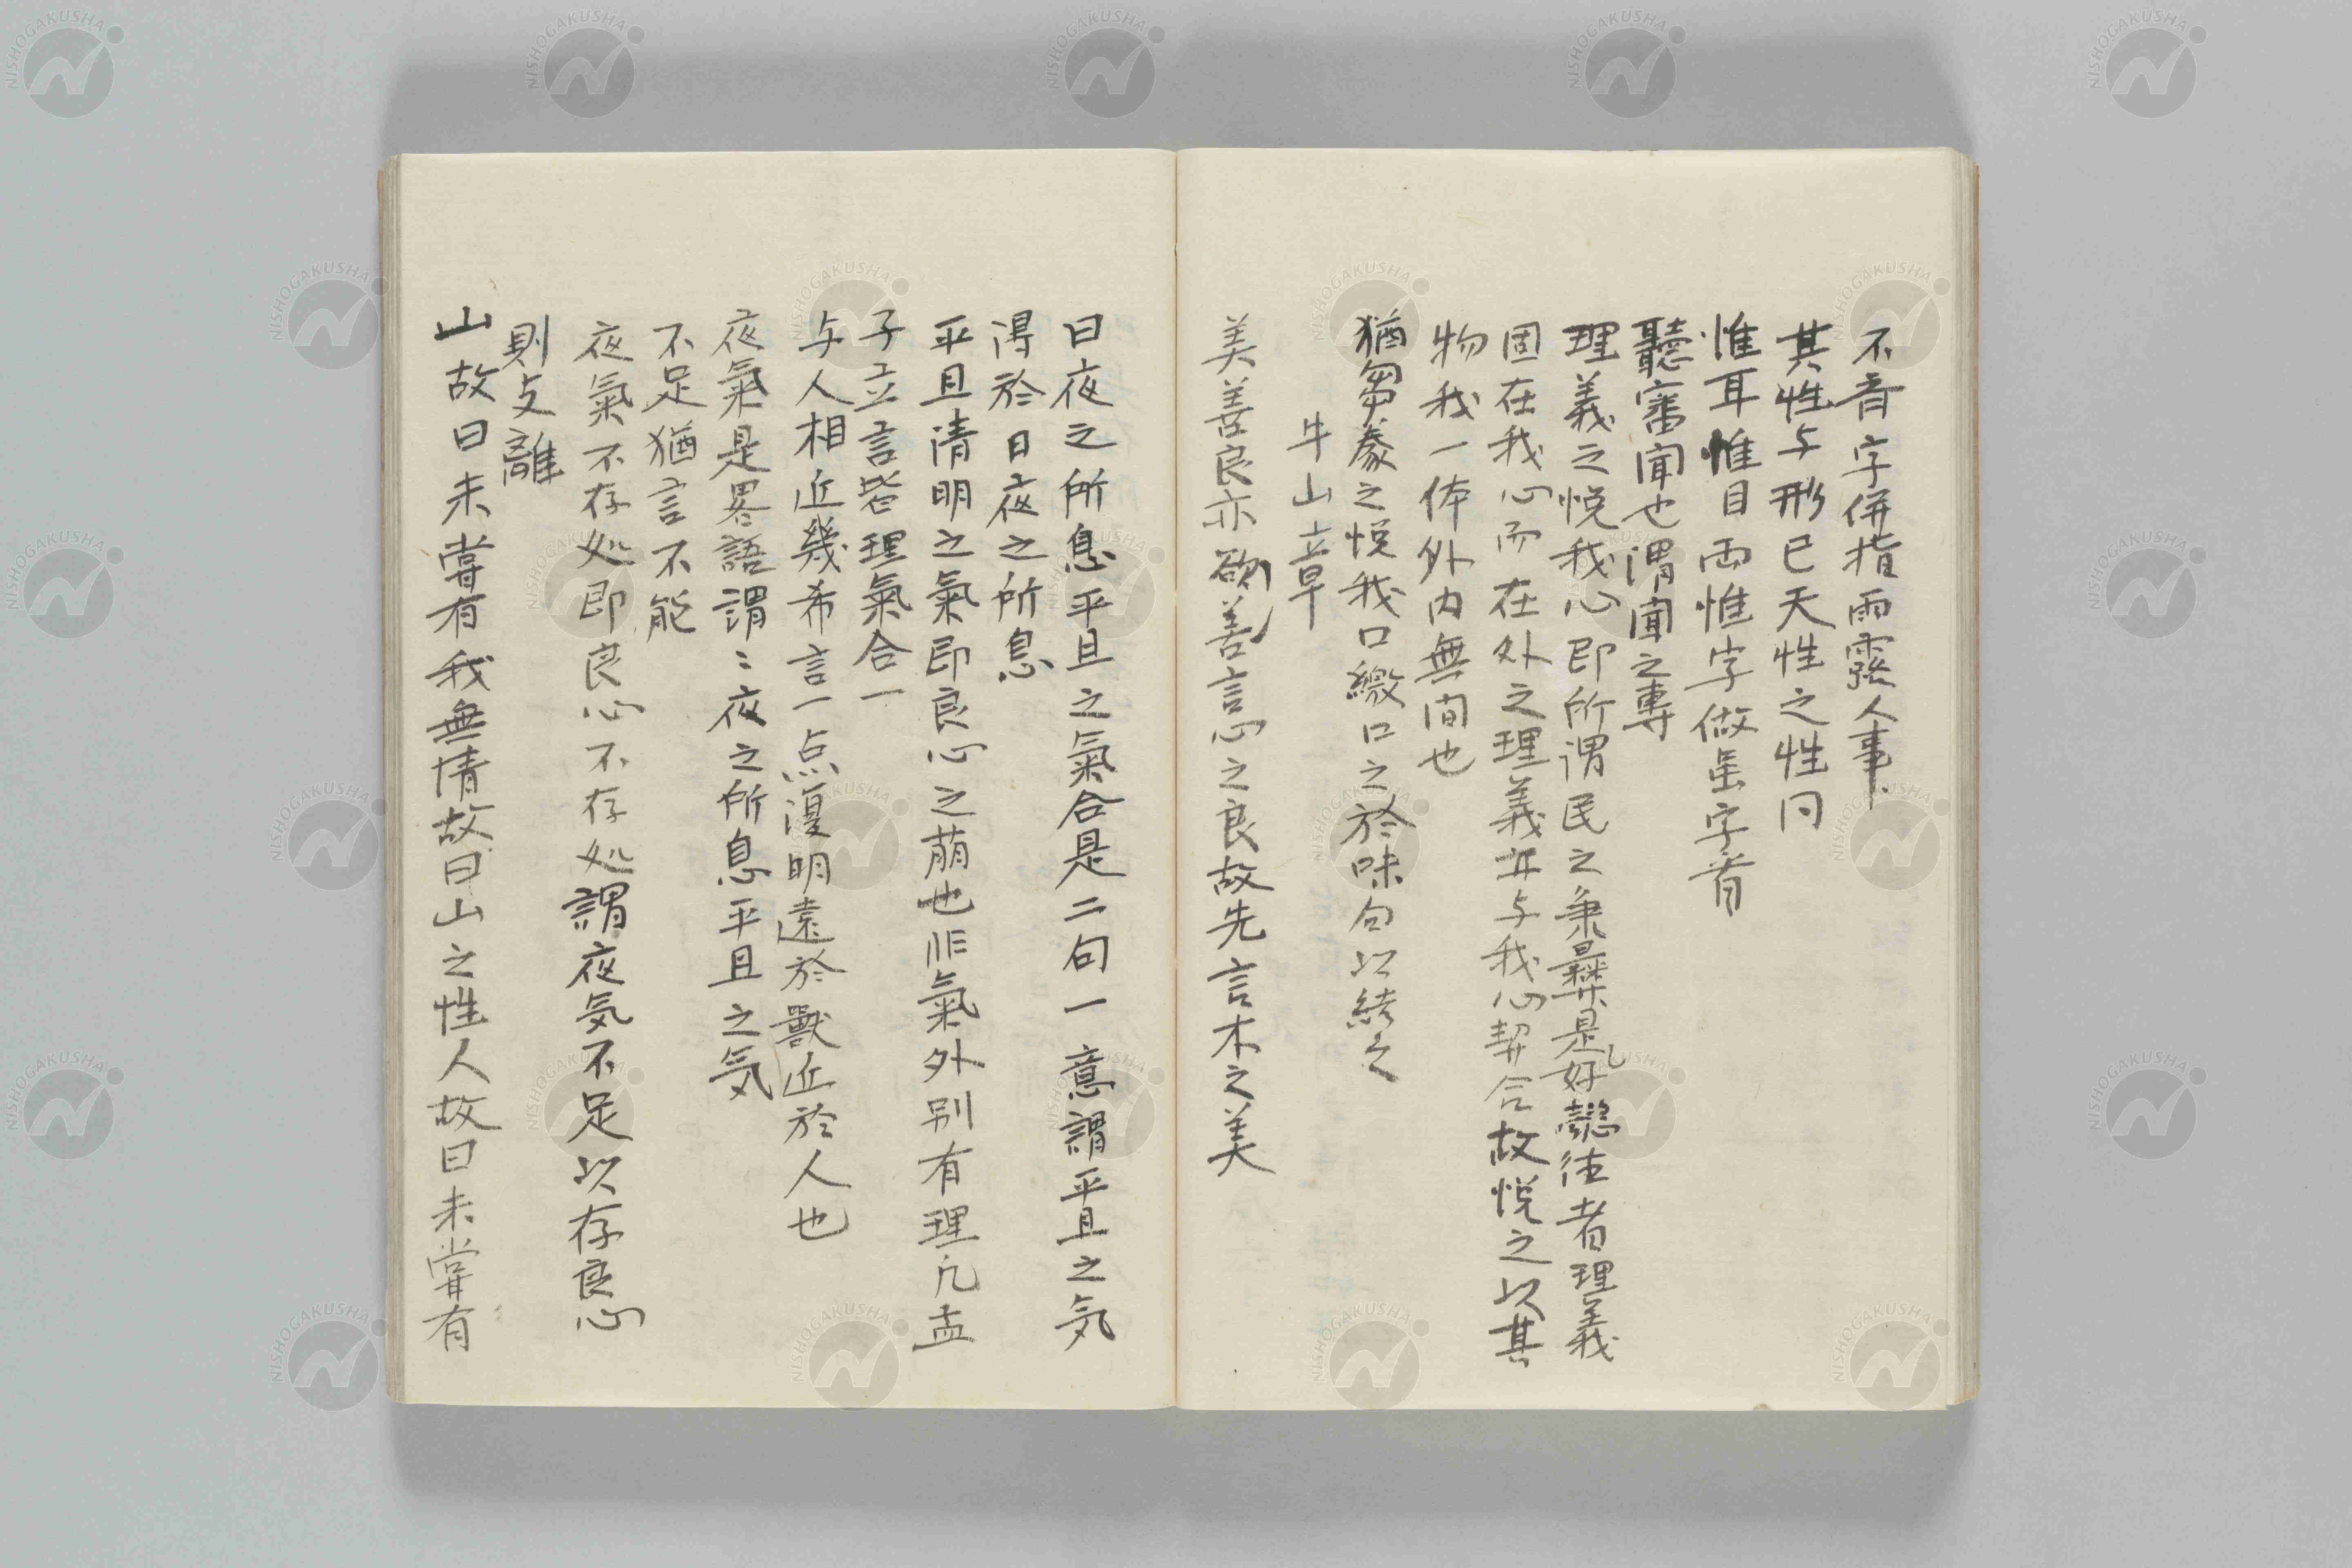 不斉字併指雨露人事
其性与形色天性之性同
惟耳惟目両惟字做虽字看
聽審聞也謂聞之専
理義之悦我心即所謂民之秉彝是好懿徳者理義
固在我心而在外之理義亦与我心契合故悦之以其
物我一体外内無間也
猶芻豢之悦我口繳口之於味句以結之
牛山章
美善良亦欲善言心之良故先言木之美
日夜之所息平旦之氣合是二句一意謂平旦之気
得於日夜之所息
平旦清明之氣即良心之萠也非氣外別有理凡孟
子立言皆理氣合一
与人相近幾希言一点復明遠於獸近於人也
夜氣是畧語謂〻夜之所息平旦之気
不足猶言不能
夜氣不存処即良心不存処謂夜気不足以存良心
則支離
山故曰未嘗有我無情故曰山之性人故曰未嘗有
NISHOGAKUSHA